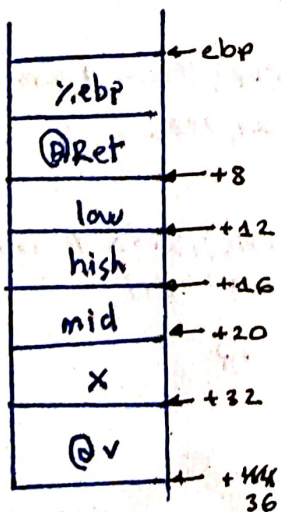 ← ebp
%ebp
@Ret
← +8
low
← +12
high
← +16
mid
← +20
x
← +32
@v
← +
36